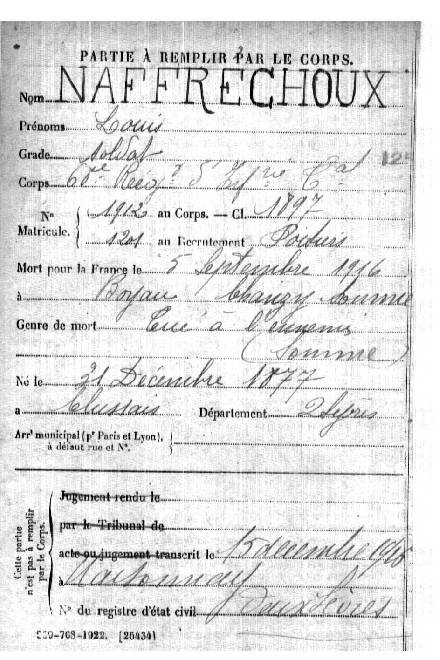 PARTIE À REMPLIR PAR LE CORPS.
Nom NAFFRECHOUX
Prénoms Louis
Grade soldat
Corps d'Inf.rie C.al
N° Matricule. { 1912 au Corps. — Cl. 1897
1201 au Recrutement Poitiers
Mort pour la France le 5 Septembre 1916
à Boyau Chanzy Somme
Genre de mort Tué à l'ennemi
(Somme)
Né le 31 Décembre 1877
à Clussais Département 2 Sèvres
Arr' municipal (p' Paris et Lyon),
à défaut rue et N°.
Cette partie n'est pas à remplir par le Corps.
Jugement rendu le
par le Tribunal de
acte ou jugement transcrit le 15 décembre
à
N° du registre d'état civil Deux Sèvres
539-708-1922. [25434]